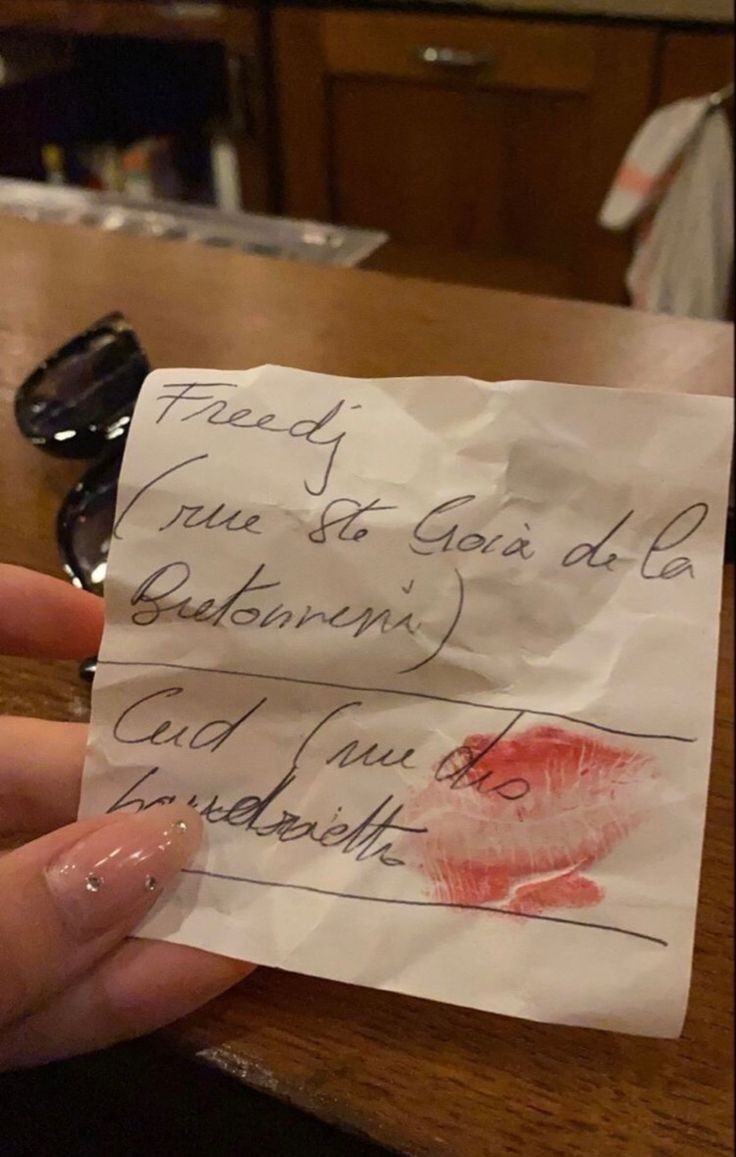 Freedj
(rue Ste Croix de la
Bretonnerie)
Cud (rue des